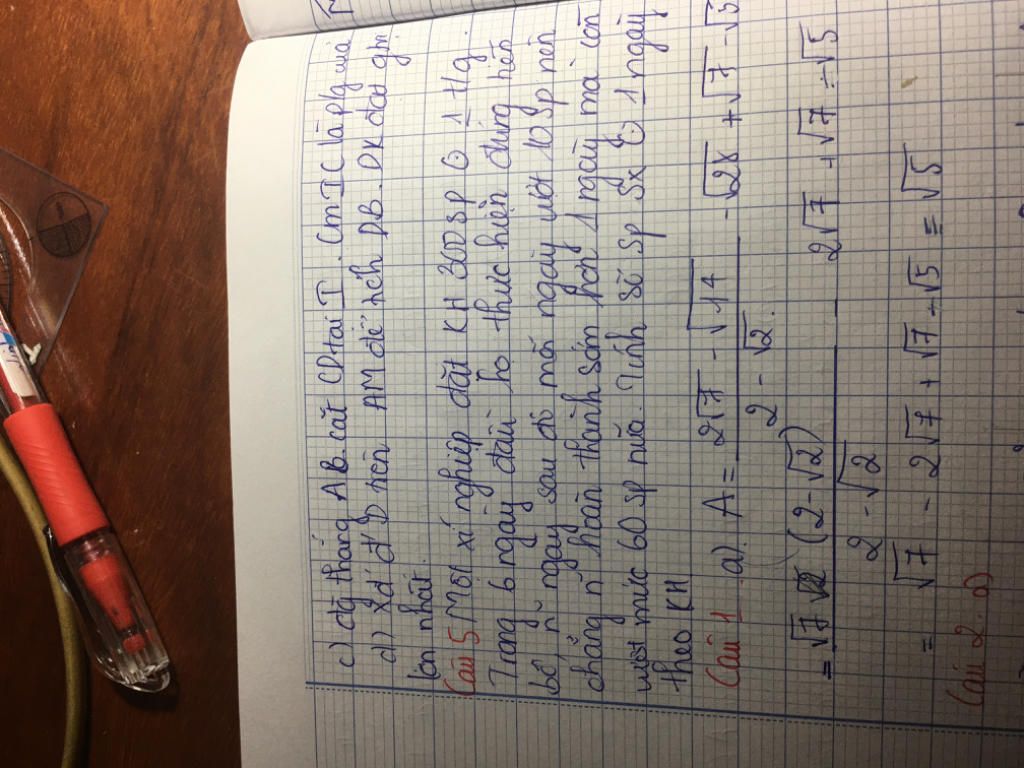 c) đg thẳng AB cắt CD tại I. Cm IC là pIg của
d) Xđ đ' D trên AM để tích DB.DK đạt gtri
lớn nhất.
Câu 5 Một xí nghiệp đặt KH 300 sp 6 1 tg.
Trong 6 ngày đầu họ thực hiện đúng tiến
độ, n ngày sau đó mỗi ngày vượt 10 sp nên
chẳng n hoàn thành sớm hơn 1 ngày mà còn
vượt mức 60 sp nữa. Tính số sp sx 6 1 ngày
theo KH
Câu 1 a). A = \frac{2√7 - √14}{2 - √2} - √28 + √7 - √5
= \frac{√7 (2 - √2)}{2 - √2} 2√7 + √7 - √5
= √7 - 2√7 + √7 - √5 = √5
Câu 2. a)